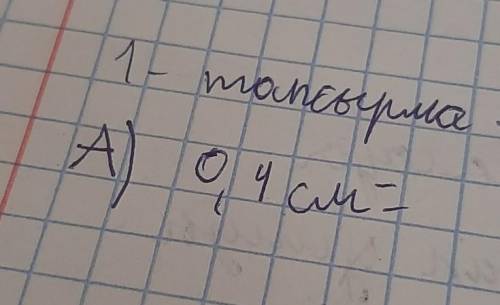 1- тапсырма.
А) 0,4 см=